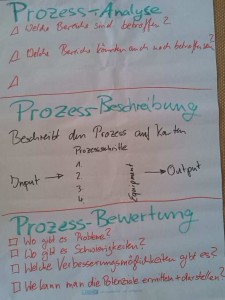 Prozess-Analyse
Welche Bereiche sind betroffen?
Welche Bereiche könnten auch noch betroffen sein?
Prozess-Beschreibung
Beschreibt den Prozess auf Karten
Prozessschritte
1
Input → 2 → Output
3
4
Equipment
Prozess-Bewertung
Wo gibt es Probleme?
Wo gibt es Schwierigkeiten?
Welche Verbesserungsmöglichkeiten gibt es?
Wie kann man die Potenziale ermitteln + darstellen?